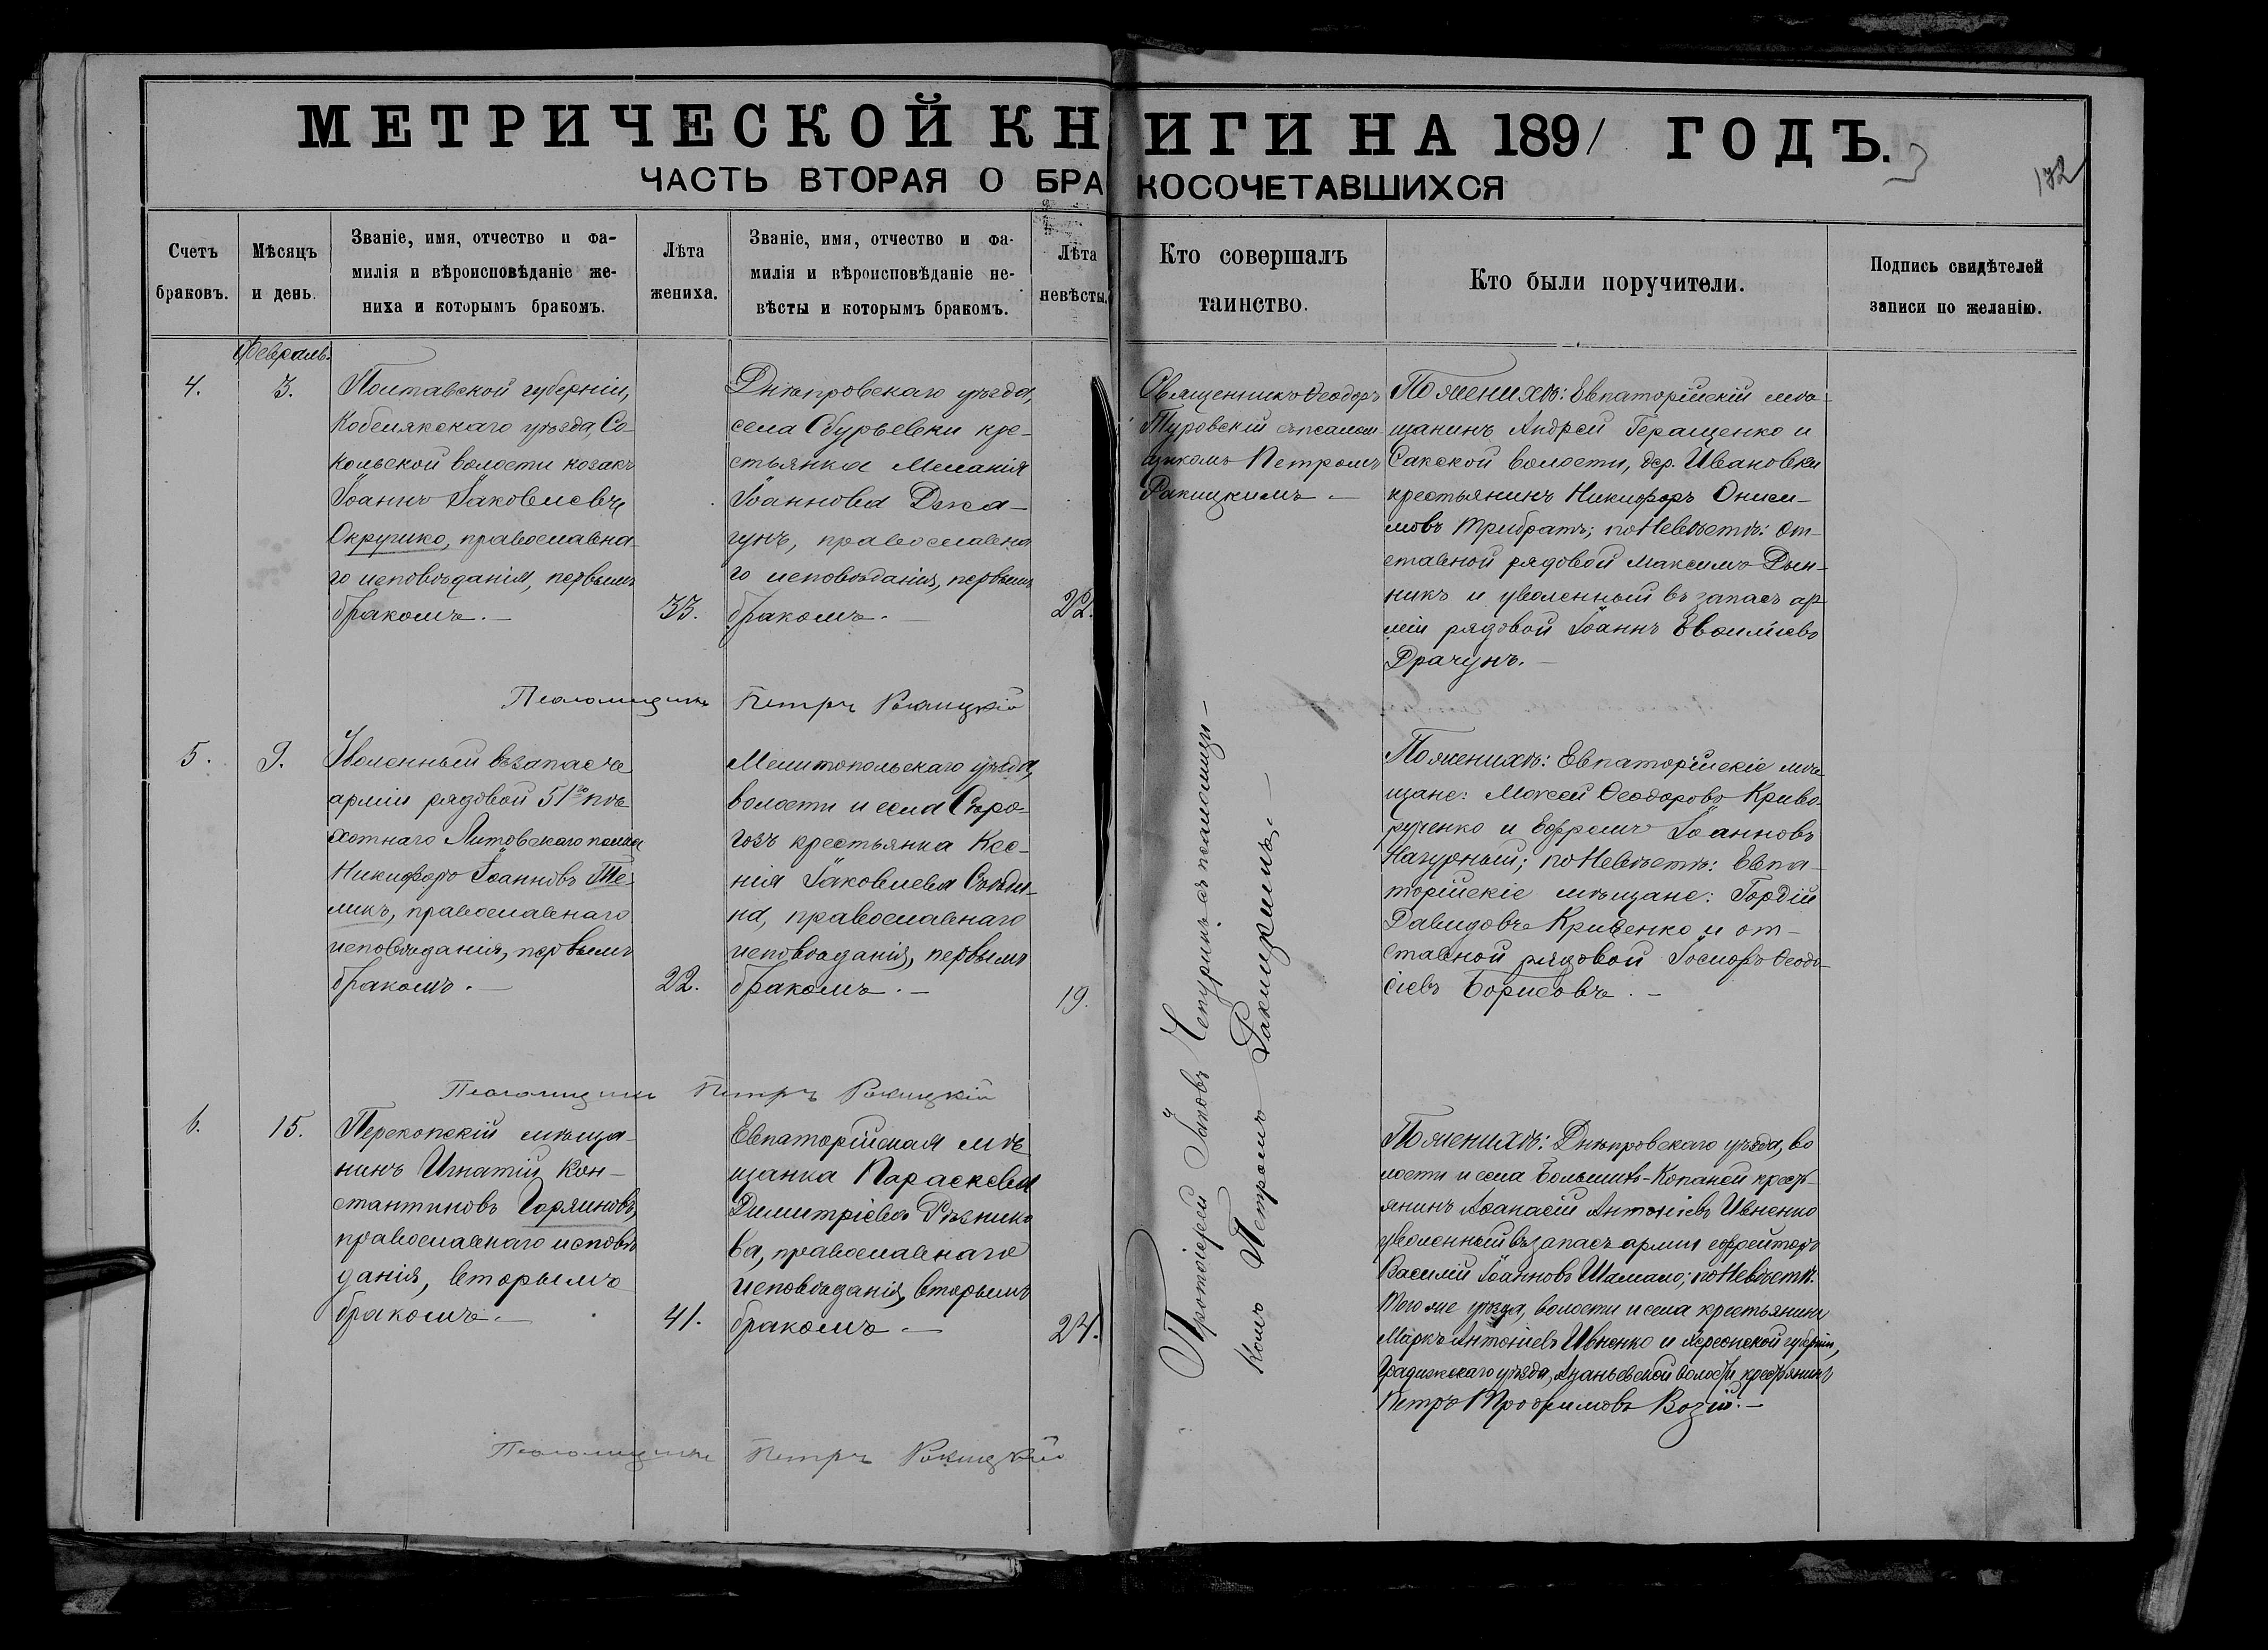 МЕТРИЧЕСКОЙ КНИГИ НА 1891 ГОДЪ.
172
ЧАСТЬ ВТОРАЯ О БРАКОСОЧЕТАВШИХСЯ
Счетъ
браковъ.
Мѣсяцъ
и день.
Званіе, имя, отчество и фа-
милія и вѣроисповѣданіе же-
ниха и которымъ бракомъ.
Лѣта
жениха.
Званіе, имя, отчество и фа-
милія и вѣроисповѣданіе не-
вѣсты и которымъ бракомъ.
Лѣта
невѣсты.
Кто совершалъ
таинство.
Кто были поручители.
Подпись свидѣтелей
записи по желанію.
Февраль.
4.
3.
Полтавской губерніи,
Кобелякскаго уѣзда, Со-
кольской волости козакъ
Іоаннъ Іаковлевъ
Окрушко, православна-
го исповѣданія, первымъ
бракомъ. —
33.
Днѣпровскаго уѣзда,
села Збурьевки кре-
стьянка Меланія
Іоаннова
православна
го исповѣданія, первымъ
бракомъ. —
22.
Священникъ Ѳеодоръ
Туровскій съ псалом-
щикомъ Петромъ
Ракицкимъ. —
По женихѣ: Евпаторійскій мѣ-
щанинъ Андрей Геращенко и
Сакской волости, дер. Ивановки
крестьянинъ Никифоръ Ониси-
мовъ Трибратъ; по невѣстѣ: от-
ставной рядовой Максимъ Дын-
никъ и уволенный въ запасъ ар
міи рядовой Іоаннъ
Драчунъ. —
Псаломщикъ Петръ Ракицкій
5.
9.
Уволенный въ запасъ
арміи рядовой 51го пѣ-
хотнаго Литовскаго полка
Никифоръ Іоанновъ Те-
ликъ, православнаго
исповѣданія, первымъ
бракомъ. —
22.
Мелитопольскаго уѣзда,
волости и села Сѣро-
гозъ крестьянка Ксе-
нія Іаковлева
православнаго
исповѣданія, первымъ
бракомъ. —
19.
Протоіерей Іаковъ Чепуринъ съ псаломщи-
комъ Петромъ Ракицкимъ. —
По женихѣ: Евпаторійскіе мѣ
щане: Моисей Ѳеодоровъ Криво-
рученко и Ефремъ Іоанновъ
Нагурный; по невѣстѣ: Евпа-
торійскіе мѣщане: Гордій
Давидовъ Кривенко и от-
ставной рядовой Іосифъ Ѳеодо-
сіевъ Борисовъ. —
Псаломщикъ Петръ Ракицкій
6.
15.
Перекопскій мѣща-
нинъ Игнатій Кон-
стантиновъ Горяиновъ,
православнаго исповѣ
данія, вторымъ
бракомъ. —
41.
Евпаторійская мѣ
щанка Параскева
Димитріева Рѣзнико
ва, православнаго
исповѣданія, вторымъ
бракомъ. —
24.
По женихѣ: Днѣпровскаго уѣзда, во
лости и села Большихъ-Копаней крест-
янинъ Аѳанасій Антоніевъ Ивненко
уволенный въ запасъ арміи ефрейторъ
Василій Іоанновъ Шамало; по невѣстѣ:
того же уѣзда, волости и села крестьянинъ
Маркъ Антоніевъ Ивненко и Херсонской губерніи,
уѣзда, Ананьевской волости крестьянинъ
Петръ Трофимовъ Возій. —
Псаломщикъ Петръ Ракицкій